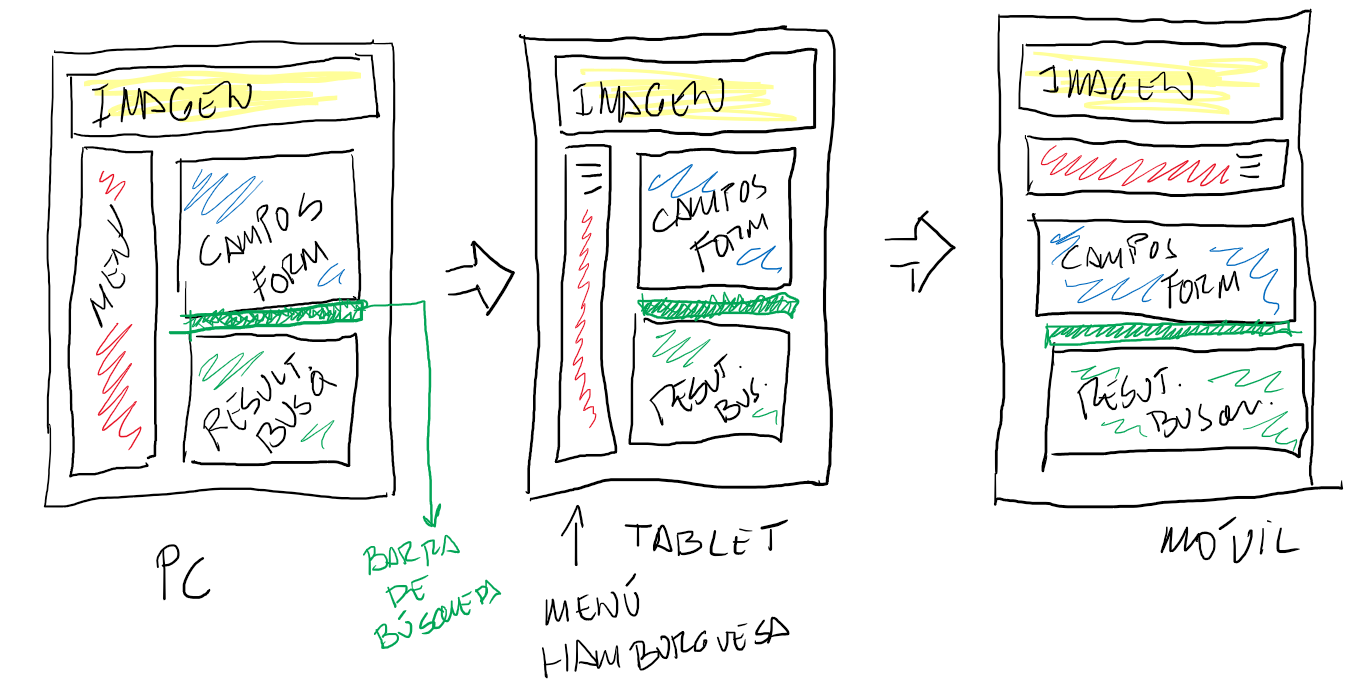 IMAGEN
MENU
CAMPOS
FORM
RESULT.
BUSQ
PC
BARRA
DE
BÚSQUEDA
IMAGEN
CAMPOS
FORM
RESUT.
BUS.
TABLET
MENÚ
HAMBURGUESA
IMAGEN
CAMPOS
FORM
RESUT.
MÓVIL